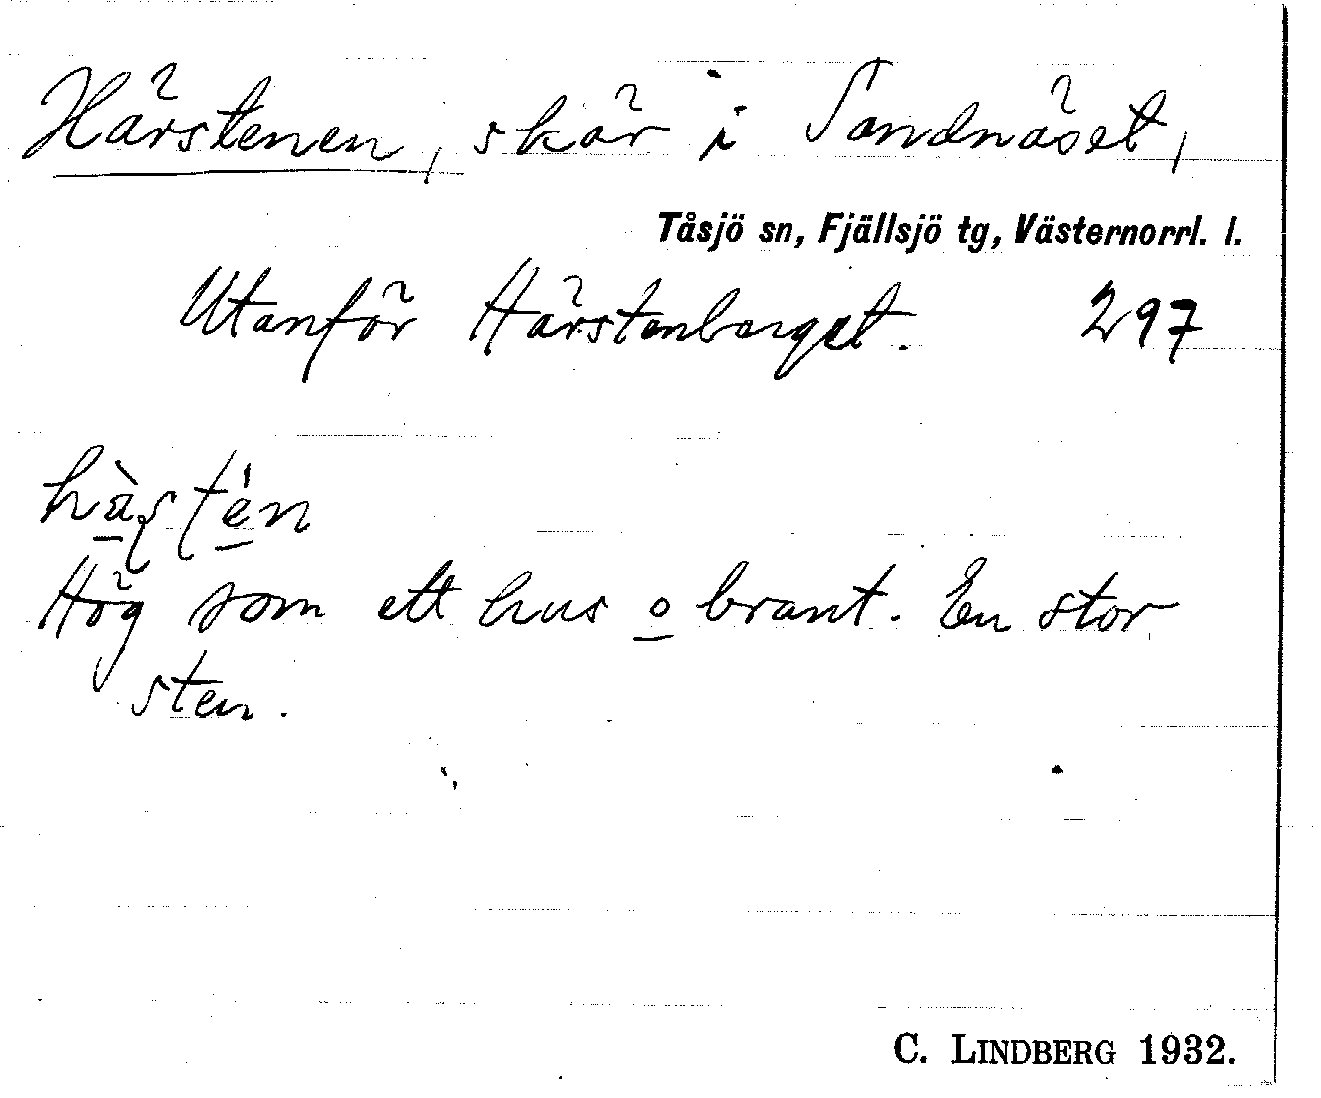 Härstenen, skär i Sandnäset,
Tåsjö sn, Fjällsjö tg, Västernorrl. l.
Utanför Härstenberget. 297
hàṣtén
Hög som ett hus o brant. En stor
sten.
C. LINDBERG 1932.